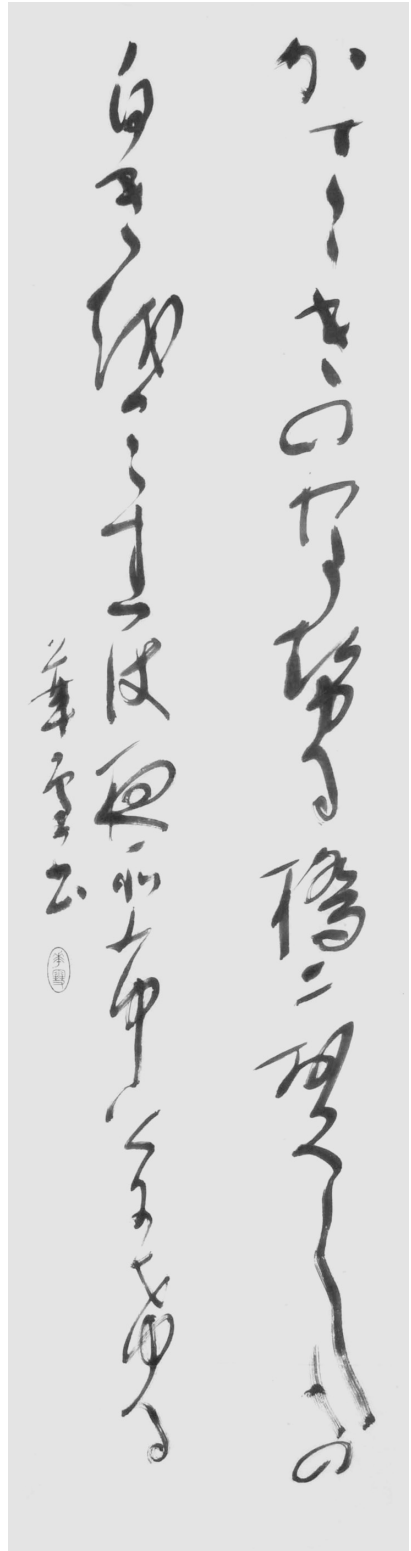 かさゝきのわたせる橋二置くしもの
白きをみれは夜そふけにける
華雪書